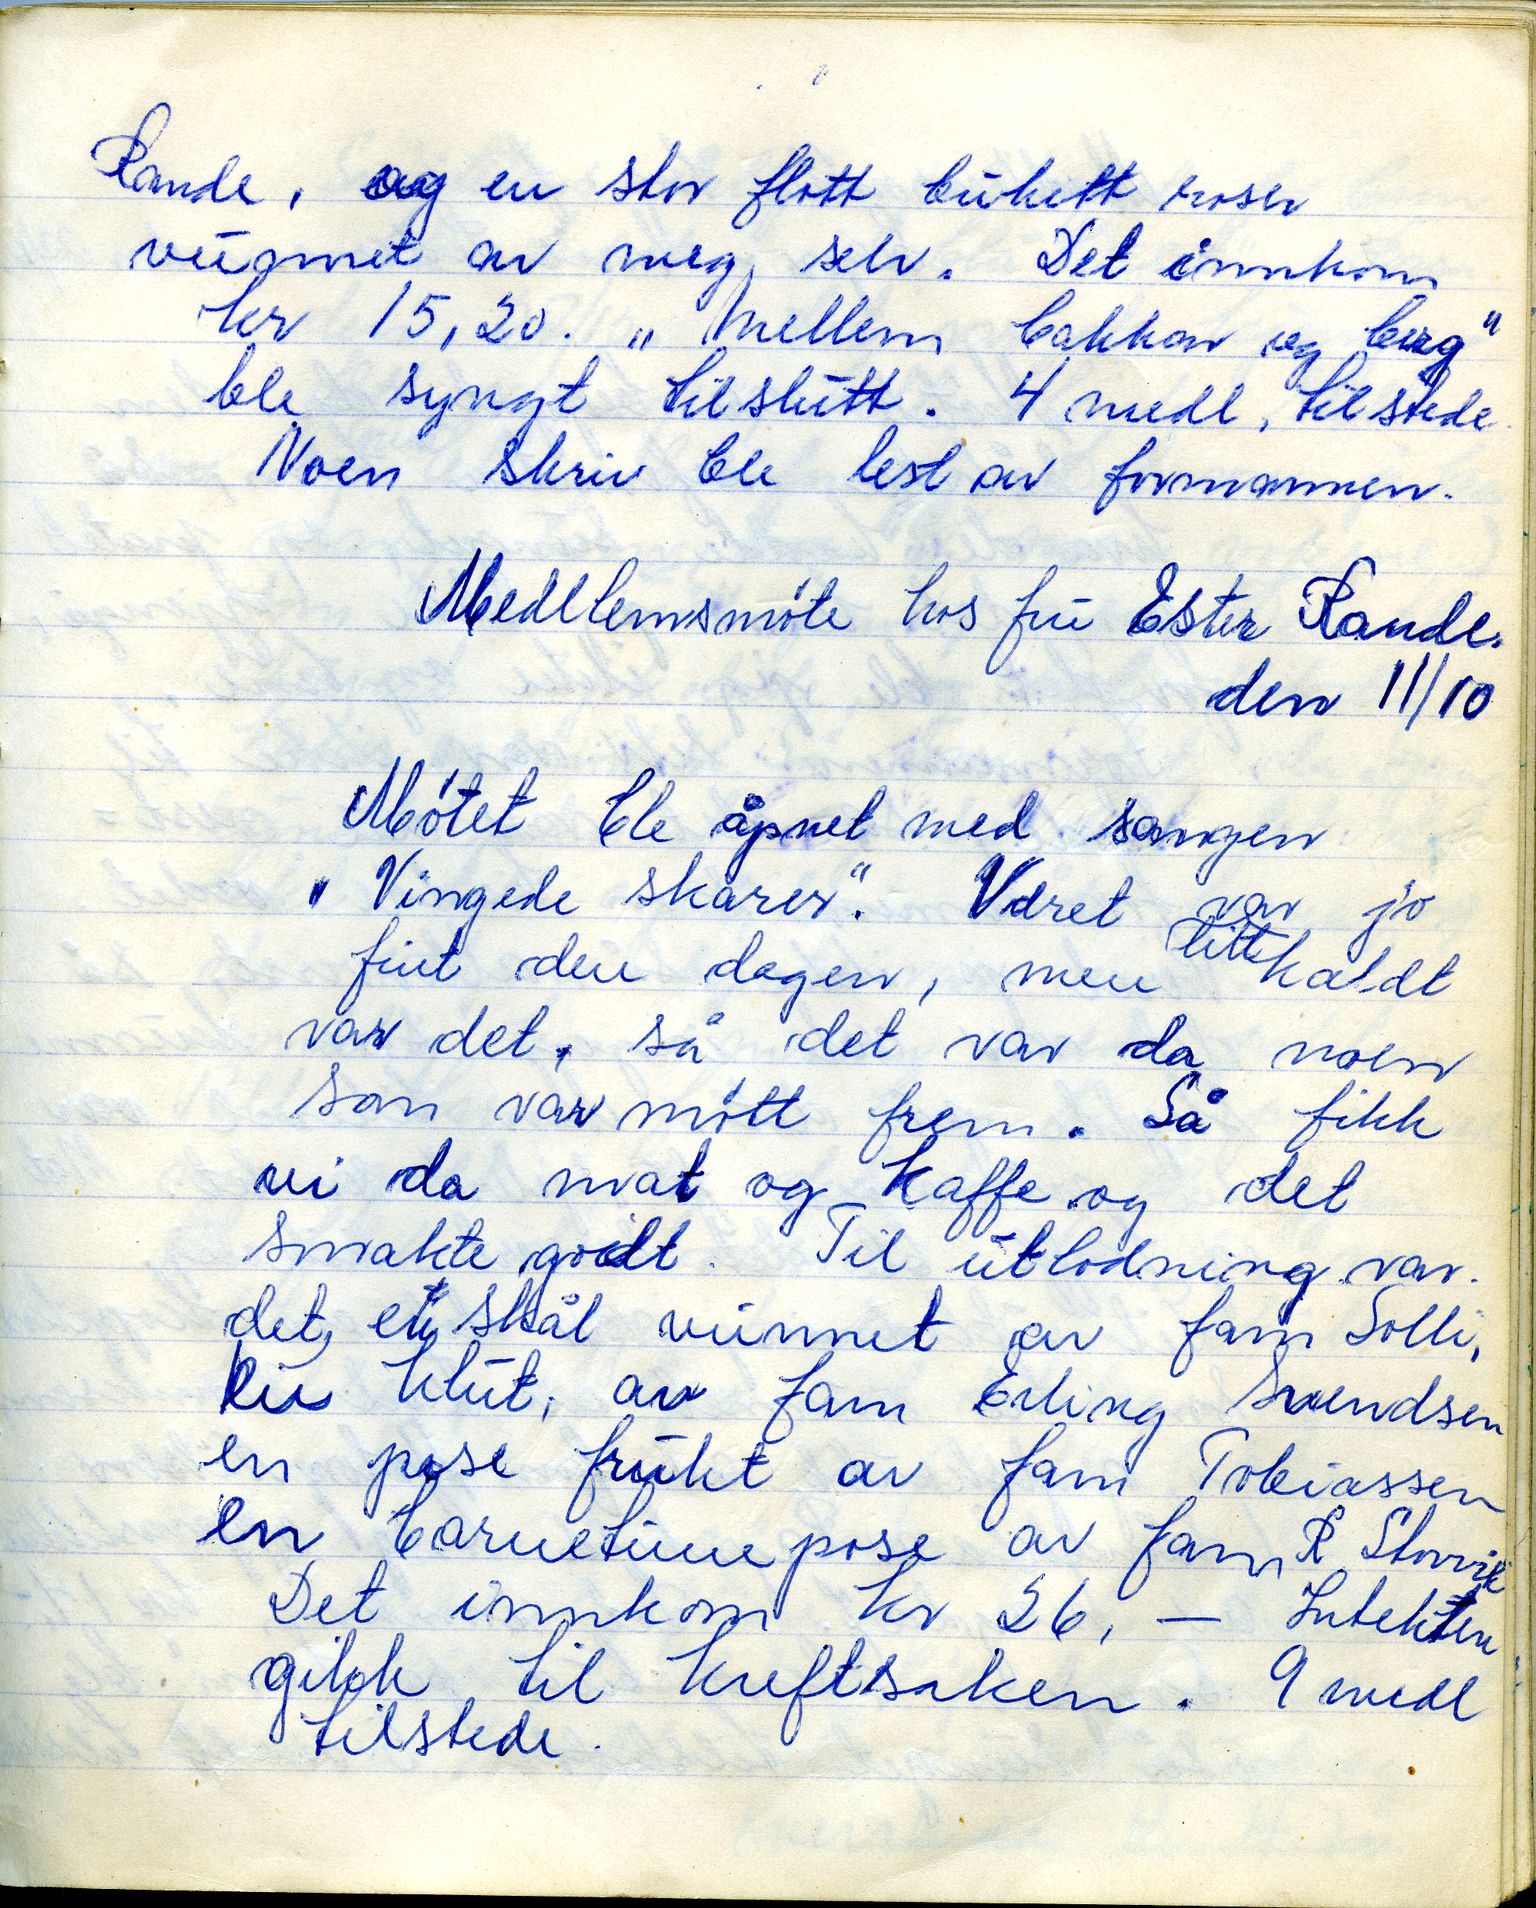 Rande, og en stor flott bukett roser
vunnet av meg selv. Det innkom
kr 15,20. „Mellem bakkar og berg"
ble syngt tilslutt. 4 medl, tilstede
Noen skriv ble lest av formannen.
Medllemsmøte hos fru Ester Rande.
den 11/10
Møtet ble åpnet med sangen
„Vingede skarer". Været var jo
fint den dagen, men litt kaldt
var det, så det var da noen
som var møtt frem. Så fikk
vi da mat og kaffe og det
smakte godt. Til utlodning var
det, et skål vunnet av fam Solli,
klut, av fam Erling Svendsen
en pose frukt av fam Tobiassen
en barnetime pose av fam R Storvik
Det innkom kr 26, — Intekten
gikk til kreftsaken. 9 medl
tilstede.